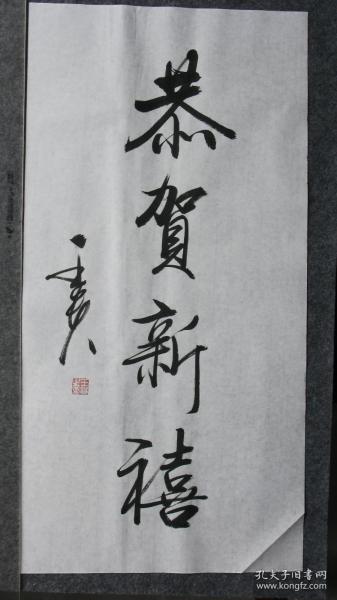 恭贺新禧
孔夫子旧书网
www.kongfz.com